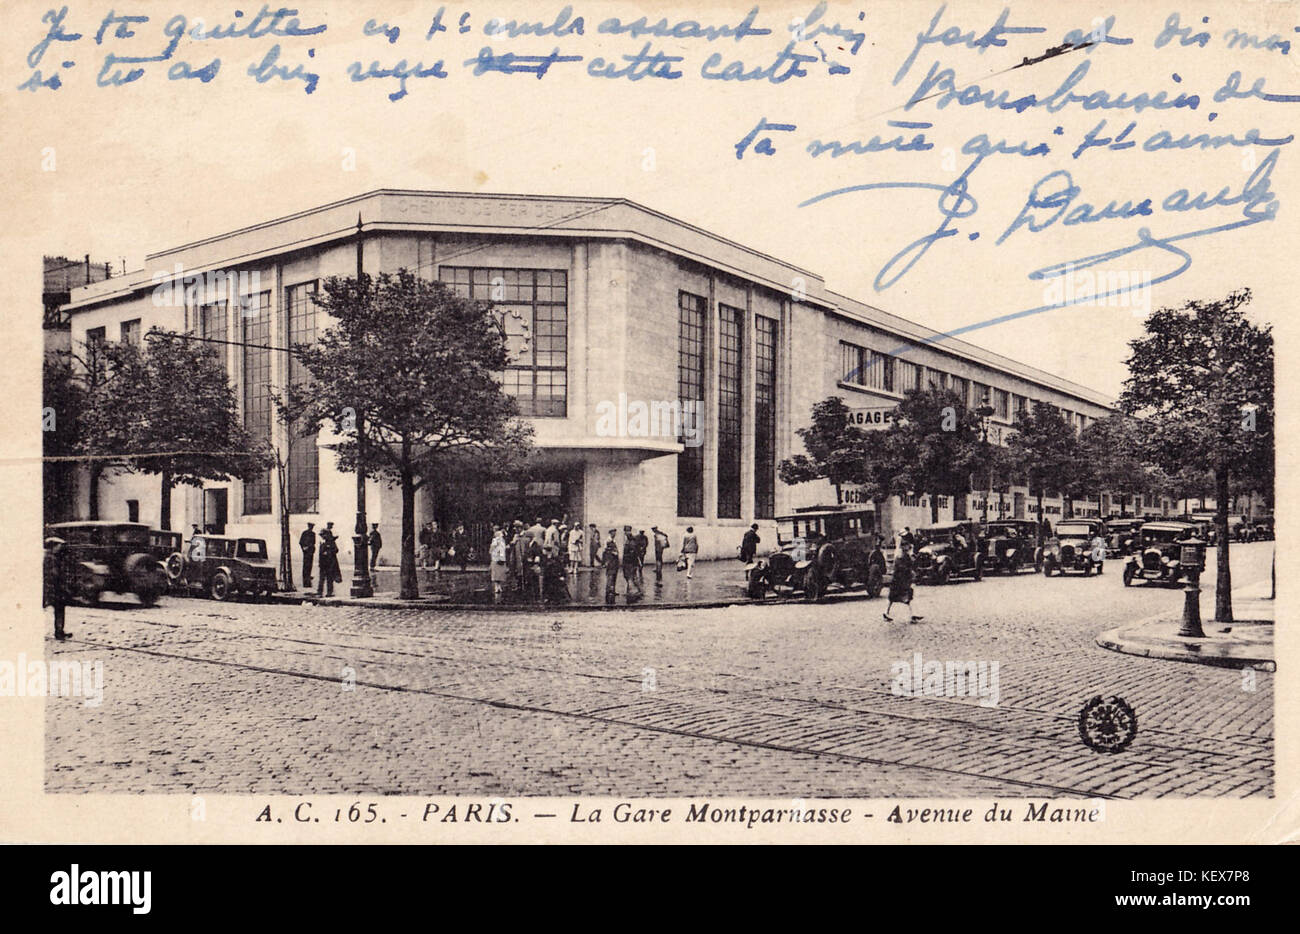 Je te quitte en t'embrassant bien fort et dis moi
si tu as bien reçu cette carte -
Bons baisers de
ta mère qui t'aime
J.
CHEMINS DE FER DE L'ETAT
BAGAGES
A. C. 165. - PARIS. — La Gare Montparnasse - Avenue du Maine
a
alamy
Image ID: KEX7P8
www.alamy.com